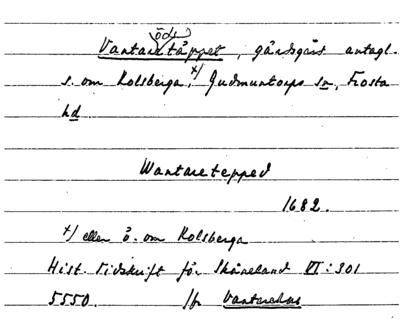 öde
Vantaretäppet, gårdsgärs antagl.
s. om Kolsberga x/, Gudmuntorps sn, Frosta
hd
Wantaretepped
1682.
x/ eller ö. om Kolsberga
Hist. Tidskrift för Skåneland VI: 301
5550. /fr Vantarehus